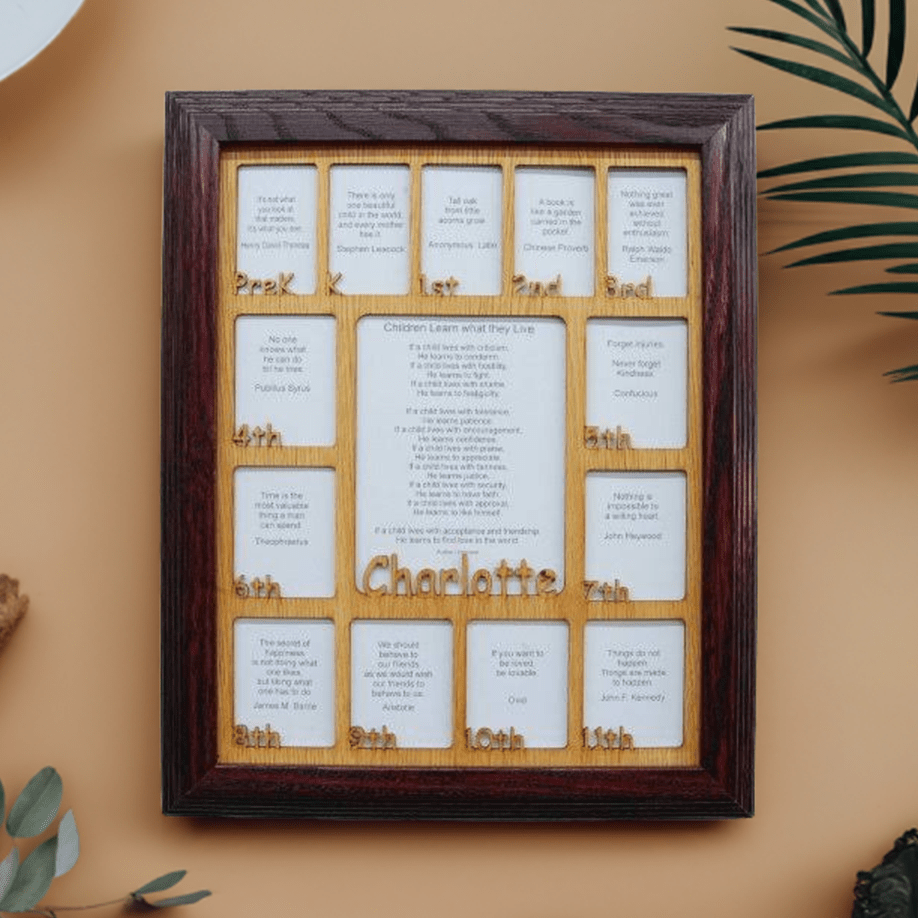 It's not what
you look at
that matters,
it's what you see.
Henry David Thoreau
PreK
There is only
one beautiful
child in the world,
and every mother
has it.
Stephen Leacock
K
Tall oak
from little
acorns grow.
Anonymous Latin
1st
A book is
like a garden
carried in the
pocket.
Chinese Proverb
2nd
Nothing great
was ever
achieved
without
enthusiasm.
Ralph Waldo
Emerson
3rd
No one
knows what
he can do
til he tries
Publilius Syrus
4th
Children Learn what they Live
If a child lives with criticism,
He learns to condemn.
If a child lives with hostility,
He learns to fight.
If a child lives with shame,
He learns to feel guilty.
If a child lives with tolerance,
He learns patience.
If a child lives with encouragement,
He learns confidence.
If a child lives with praise,
He learns to appreciate.
If a child lives with fairness,
He learns justice.
If a child lives with security,
He learns to have faith.
If a child lives with approval,
He learns to like himself.
If a child lives with acceptance and friendship,
He learns to find love in the world.
Charlotte
Forget injuries.
Never forget
Kindness.
Confucious
5th
Time is the
most valuable
thing a man
can spend
Theophrastus
6th
Nothing is
impossible to
a willing heart.
John Heywood
7th
The secret of
happiness
is not doing what
one likes,
but liking what
one has to do
James M. Barrie
8th
We should
behave to
our friends
as we would wish
our friends to
behave to us
Aristotle
9th
If you want to
be loved,
be lovable.
Ovid
10th
Things do not
happen.
Things are made
to happen.
John F. Kennedy
11th